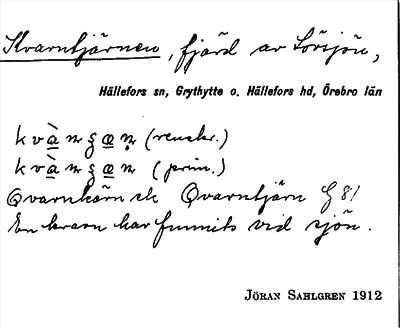 Kvarntjärnen, fjärd av Torsjön,
Hällefors sn, Grythytte o. Hällefors hd, Örebro län
(renskr.)
(prim.)
Qvarnkärn ek Qvarntjärn G 81
En kvarn har funnits vid sjön.
JÖRAN SAHLGREN 1912